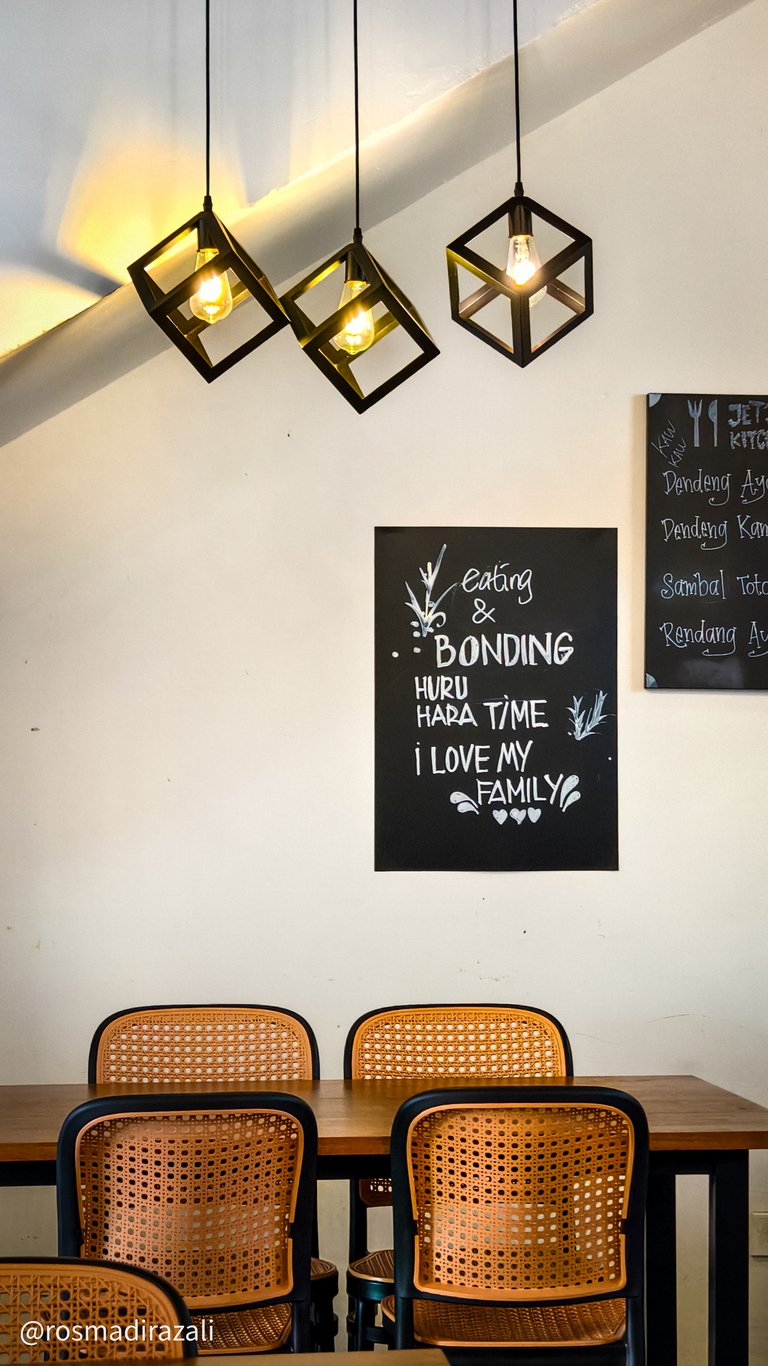 eating
&
BONDING
HURU
HARA TIME
i LOVE MY
FAMILY
KAW
KAW
JET
KITC
Dendeng Ay
Dendeng Kam
Sambal Toto
Rendang Ay
@rosmadirazali